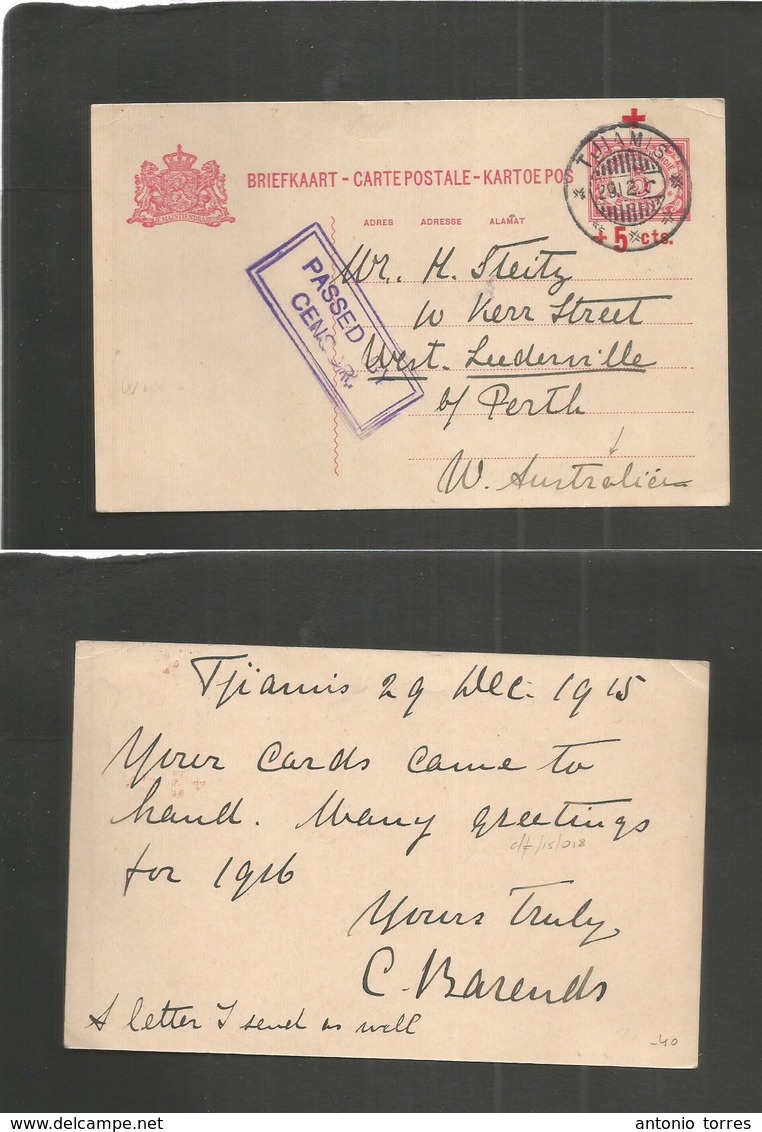 BRIEFKAART - CARTE POSTALE - KARTOE POS
JE MAINTIENDRAI
ADRES ADRESSE ALAMAT
TJIAMIS
29.12
+ 5 cts.
PASSED BY
CENSOR.
Mr. H. Steitz
10 Kerr Street
West. Leederville
b/ Perth
W. Australien
Tjiamis 29 Dec. 1915
Your cards came to
hand. Many greetings
for 1916
Yours Truly,
C. Barends
A letter I send as well
-40
antonio torres